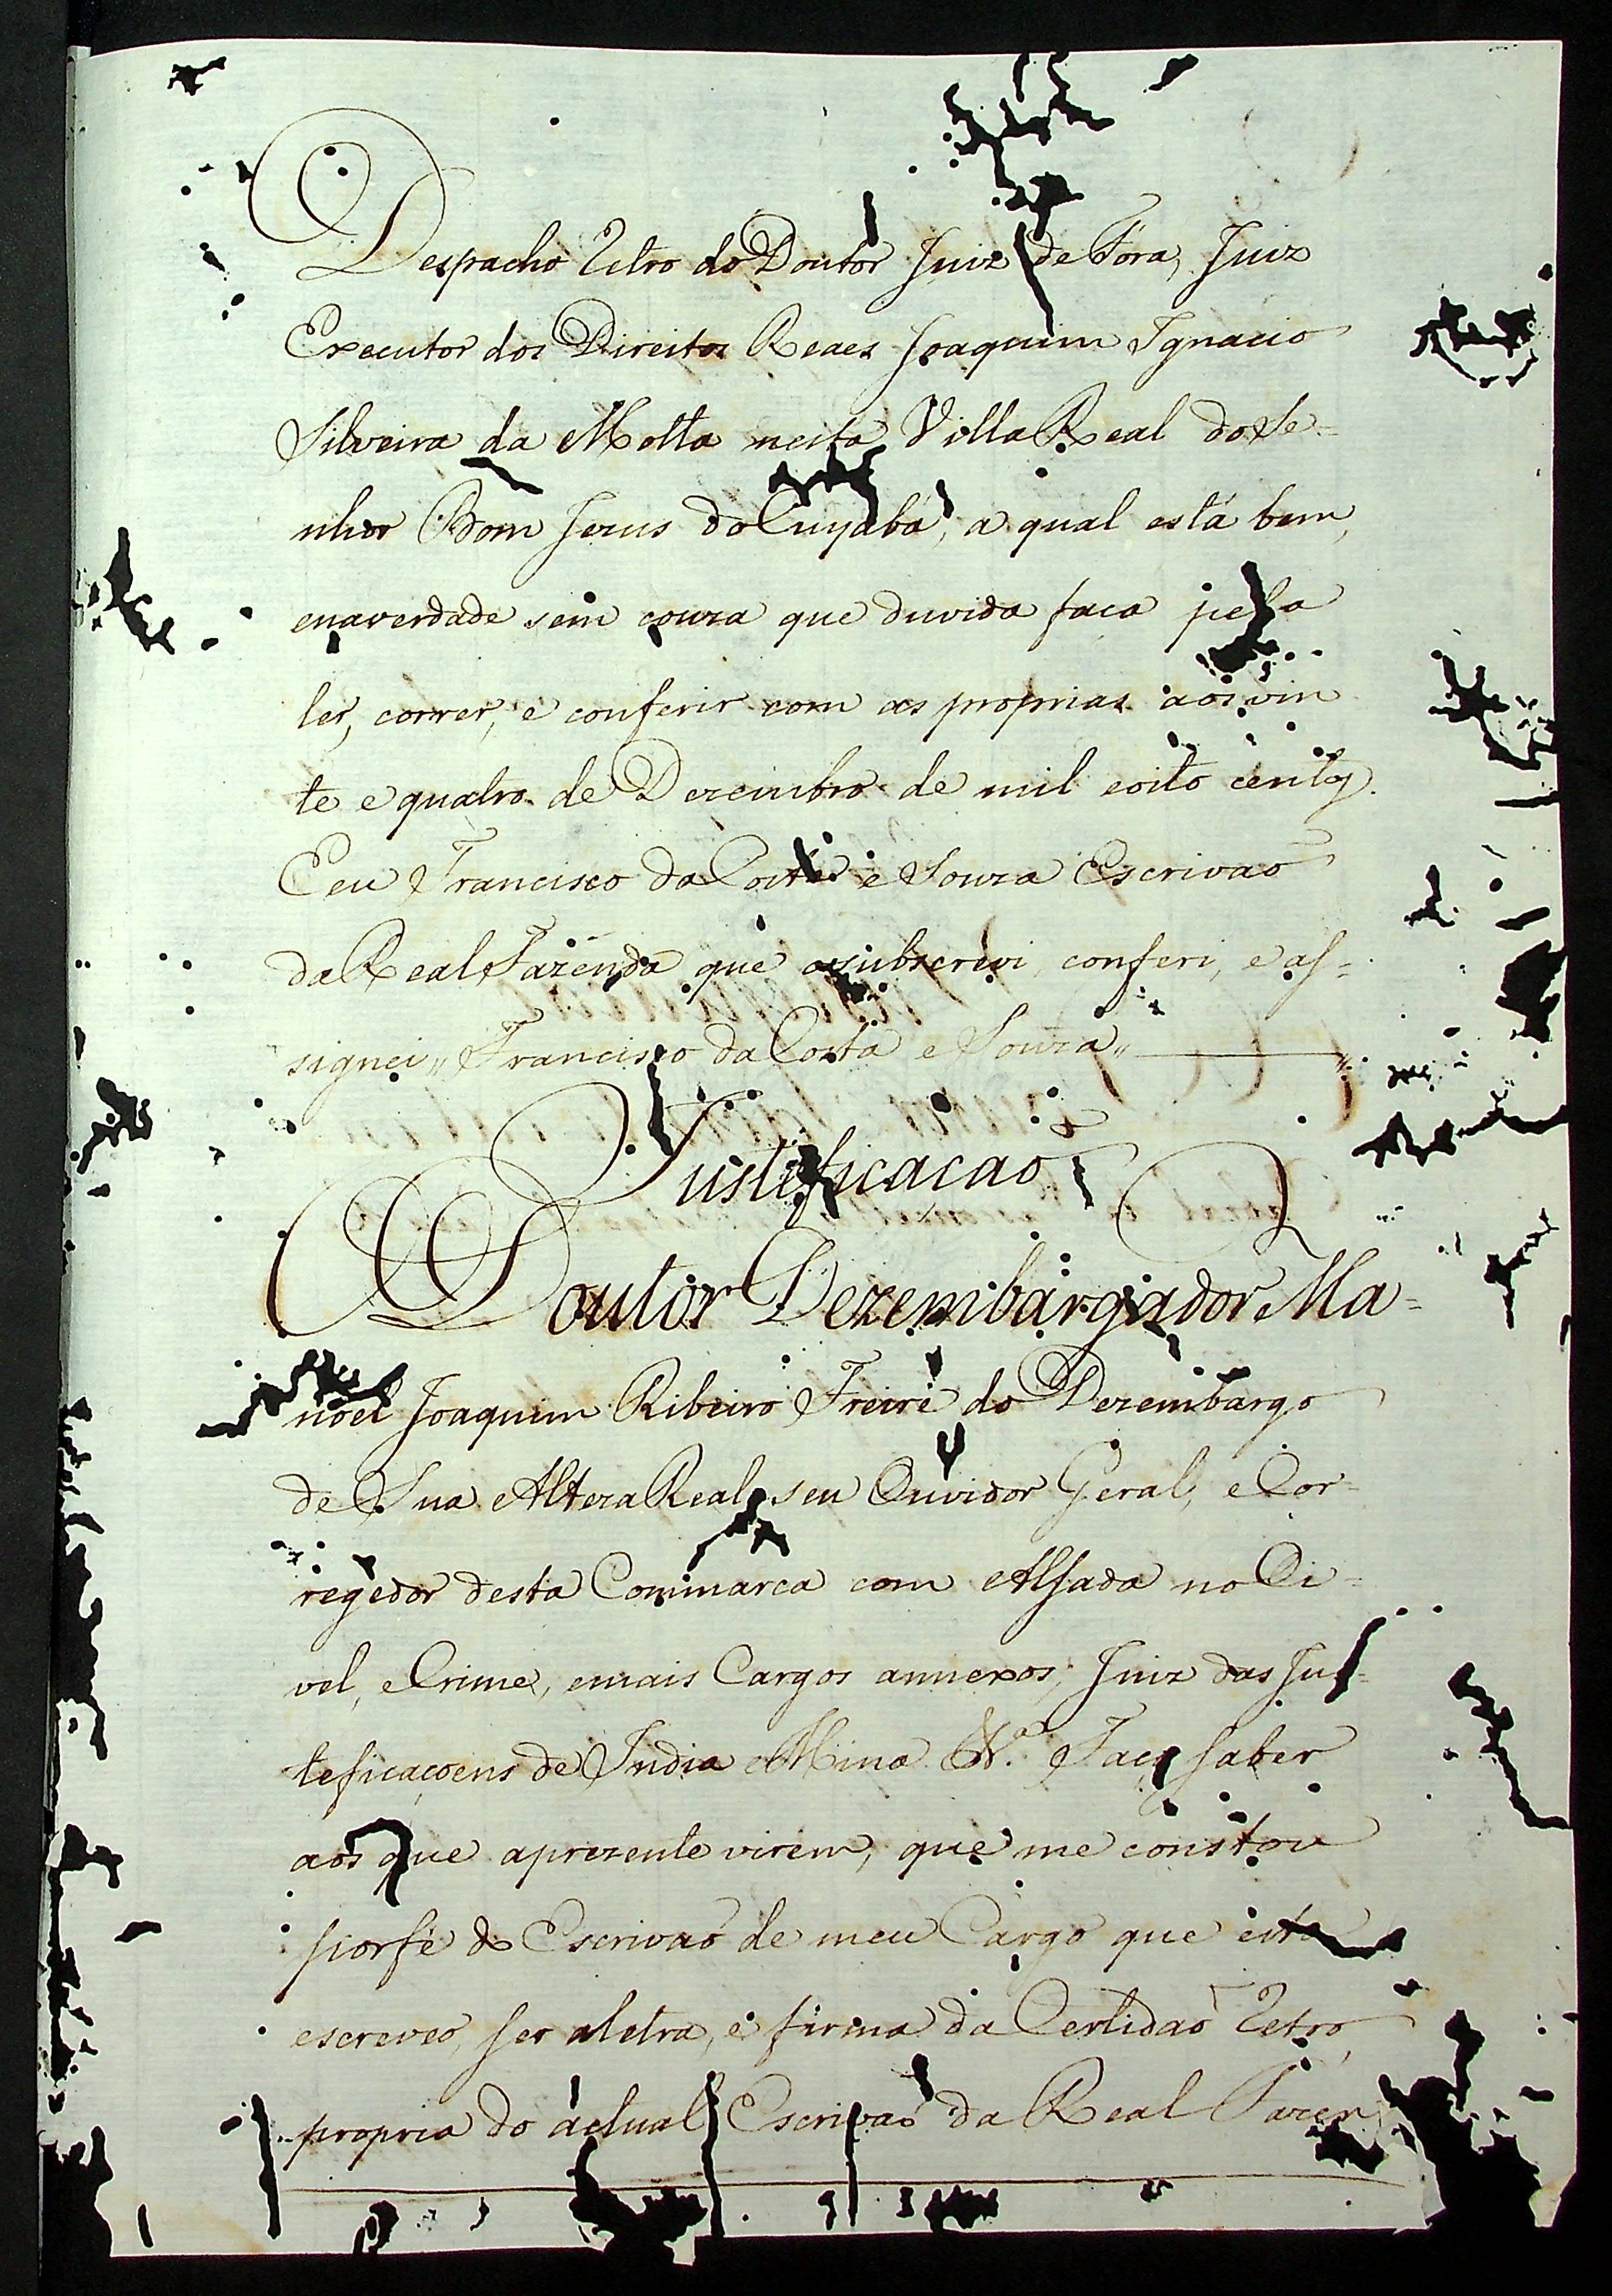 Despacho Retro do Doutor Juiz de Fora, Juiz
Executor dos Direitos Reaes Joaquim Ignacio
Silveira da Motta nesta Villa Real do Se=
nhor Bom Jezus do Cuyabá, a qual está bem,
enaverdade sem couza que duvida faca pela
ler, correr, e conferir com as proprias aos vin
te e quatro de Dezembro de mil eoito centos.
Eeu Francisco da Costa e Souza Escrivaõ
da Real Fazenda que asubscrevi, conferi, e as=
signei,, Francisco da Costa e Souza,,
Justeficacaõ
Doutor Dezembargador Ma=
noel Joaquim Ribeiro Freire do Dezembargo
de Sua Alteza Real, seu Ouvidor Geral, e Cor=
regedor desta Commarca com Alsada no Ci=
vel, e Crime, emais Cargos annexos, Juiz das Jus=
teficaçoens de India e Mina Vª. Faço saber
aos que aprezente virem, que me constou
porfé do Escrivaõ de meu Cargo que esta
escreveo, ser aletra, e firma da Certidaõ Retro,
propria do actual Escrivaõ da Real Fazen